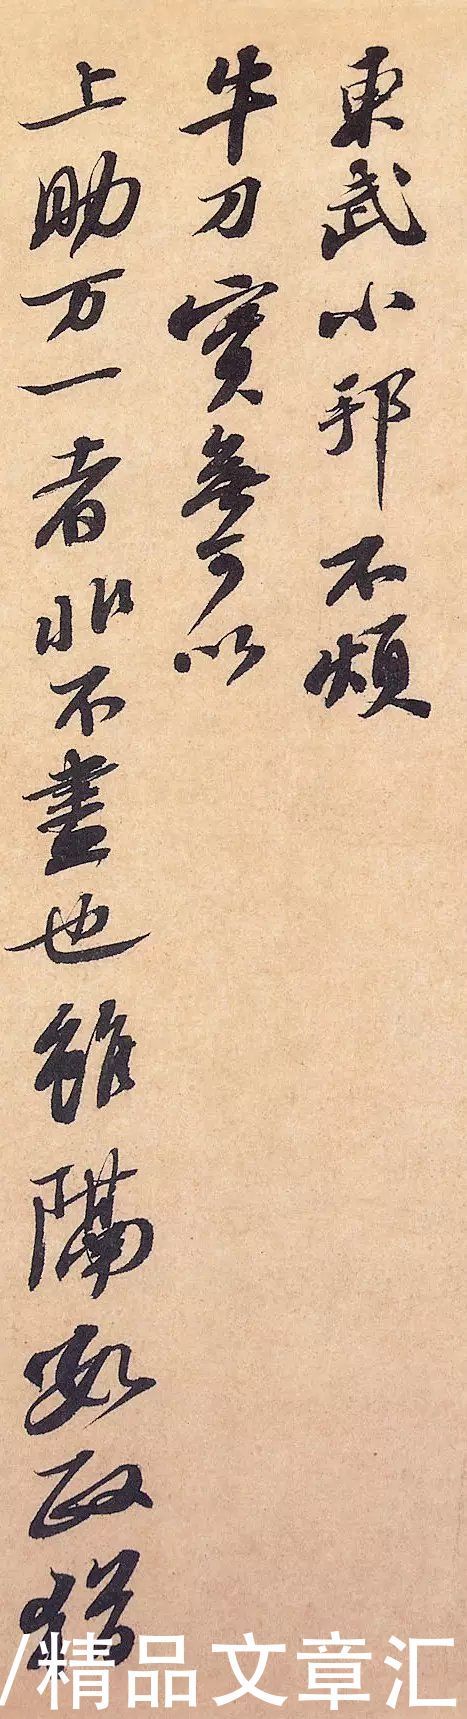 東武小邦不煩
牛刀實無可以
上助万一者非不盡也雖隔數政猶
/精品文章汇